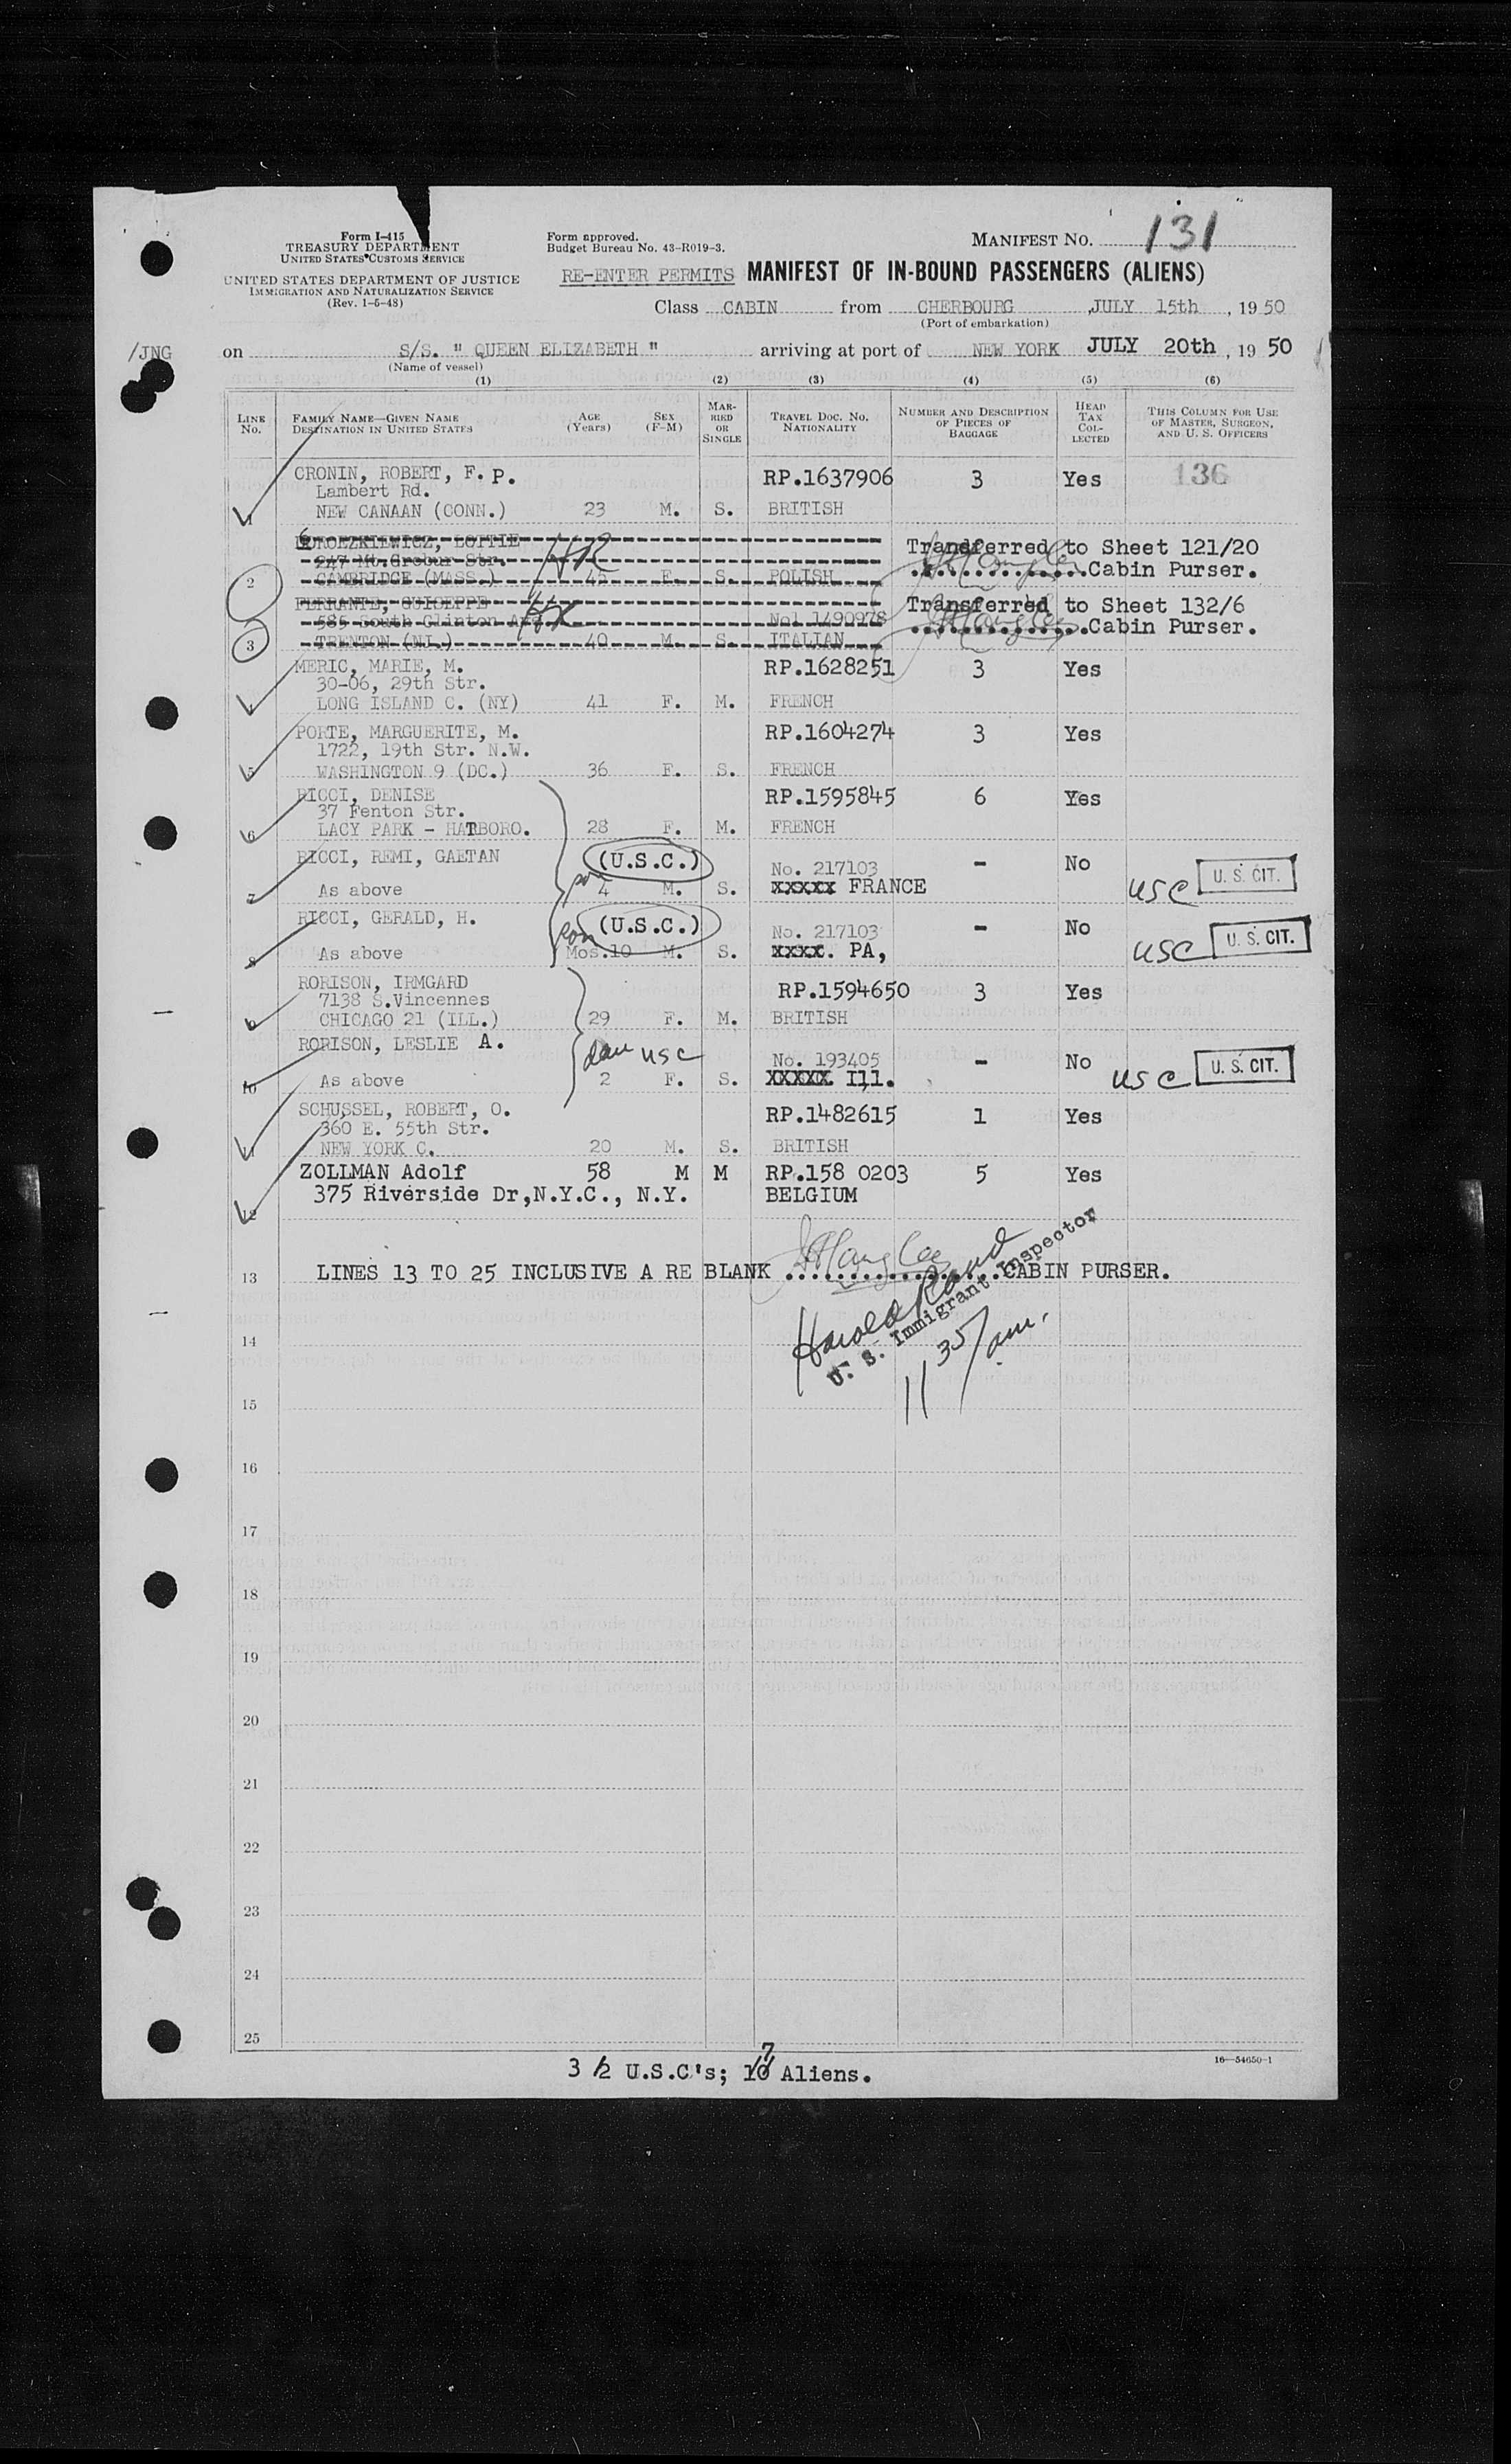 Form I-415
TREASURY DEPARTMENT
UNITED STATES CUSTOMS SERVICE
UNITED STATES DEPARTMENT OF JUSTICE
IMMIGRATION AND NATURALIZATION SERVICE
(Rev. 1-5-48)
Form approved.
Budget Bureau No. 43-R019-3.
MANIFEST NO. 131
RE-ENTER PERMITS MANIFEST OF IN-BOUND PASSENGERS (ALIENS)
Class CABIN from CHERBOURG, JULY 15th, 1950
(Port of embarkation)
/JNG on S/S. " QUEEN ELIZABETH " arriving at port of NEW YORK JULY 20th, 1950
(Name of vessel)
(1) (2) (3) (4) (5) (6)
LINE NO. FAMILY NAME—GIVEN NAME DESTINATION IN UNITED STATES AGE (Years) SEX (F-M) MARRIED OR SINGLE TRAVEL DOC. NO. NATIONALITY NUMBER AND DESCRIPTION OF PIECES OF BAGGAGE HEAD TAX COLLECTED THIS COLUMN FOR USE OF MASTER, SURGEON, AND U. S. OFFICERS
CRONIN, ROBERT, F. P. RP.1637906 3 Yes 136
Lambert Rd.
1 NEW CANAAN (CONN.) 23 M. S. BRITISH
LOTTIE Transferred to Sheet 121/20
247 Mt. Str. HR Cabin Purser.
2 CAMBRIDGE (MASS.) 45 F. S. POLISH
FERRANTE, GUISEPPE Transferred to Sheet 132/6
585 South Clinton HR No1 1490978 Cabin Purser.
3 TRENTON (NJ.) 40 M. S. ITALIAN
MERIC, MARIE, M. RP.1628251 3 Yes
30-06, 29th Str.
4 LONG ISLAND C. (NY) 41 F. M. FRENCH
PORTE, MARGUERITE, M. RP.1604274 3 Yes
1722, 19th Str. N.W.
5 WASHINGTON 9 (DC.) 36 F. S. FRENCH
RICCI, DENISE RP.1595845 6 Yes
37 Fenton Str.
6 LACY PARK - HATBORO. 28 F. M. FRENCH
RICCI, REMI, GAETAN (U.S.C.) No. 217103 - No
7 As above son 4 M. S. xxxxx FRANCE usc U. S. CIT.
RICCI, GERALD, H. son (U.S.C.) No. 217103 - No
8 As above Mos.10 M. S. xxxx. PA, usc U. S. CIT.
RORISON, IRMGARD RP.1594650 3 Yes
7138 S.Vincennes
9 CHICAGO 21 (ILL.) 29 F. M. BRITISH
RORISON, LESLIE A. dau usc No. 193405 - No
10 As above 2 F. S. XXXXX Ill. usc U. S. CIT.
SCHUSSEL, ROBERT, O. RP.1482615 1 Yes
360 E. 55th Str.
11 NEW YORK C. 20 M. S. BRITISH
ZOLLMAN Adolf 58 M M RP.158 0203 5 Yes
375 Riverside Dr,N.Y.C., N.Y. BELGIUM
12
13 LINES 13 TO 25 INCLUSIVE A RE BLANK CABIN PURSER.
Harold Rand
U. S. Immigrant Inspector
11 35/am.
14
15
16
17
18
19
20
21
22
23
24
25
3 1/2 U.S.C's; 10 7 Aliens.
16—54650-1